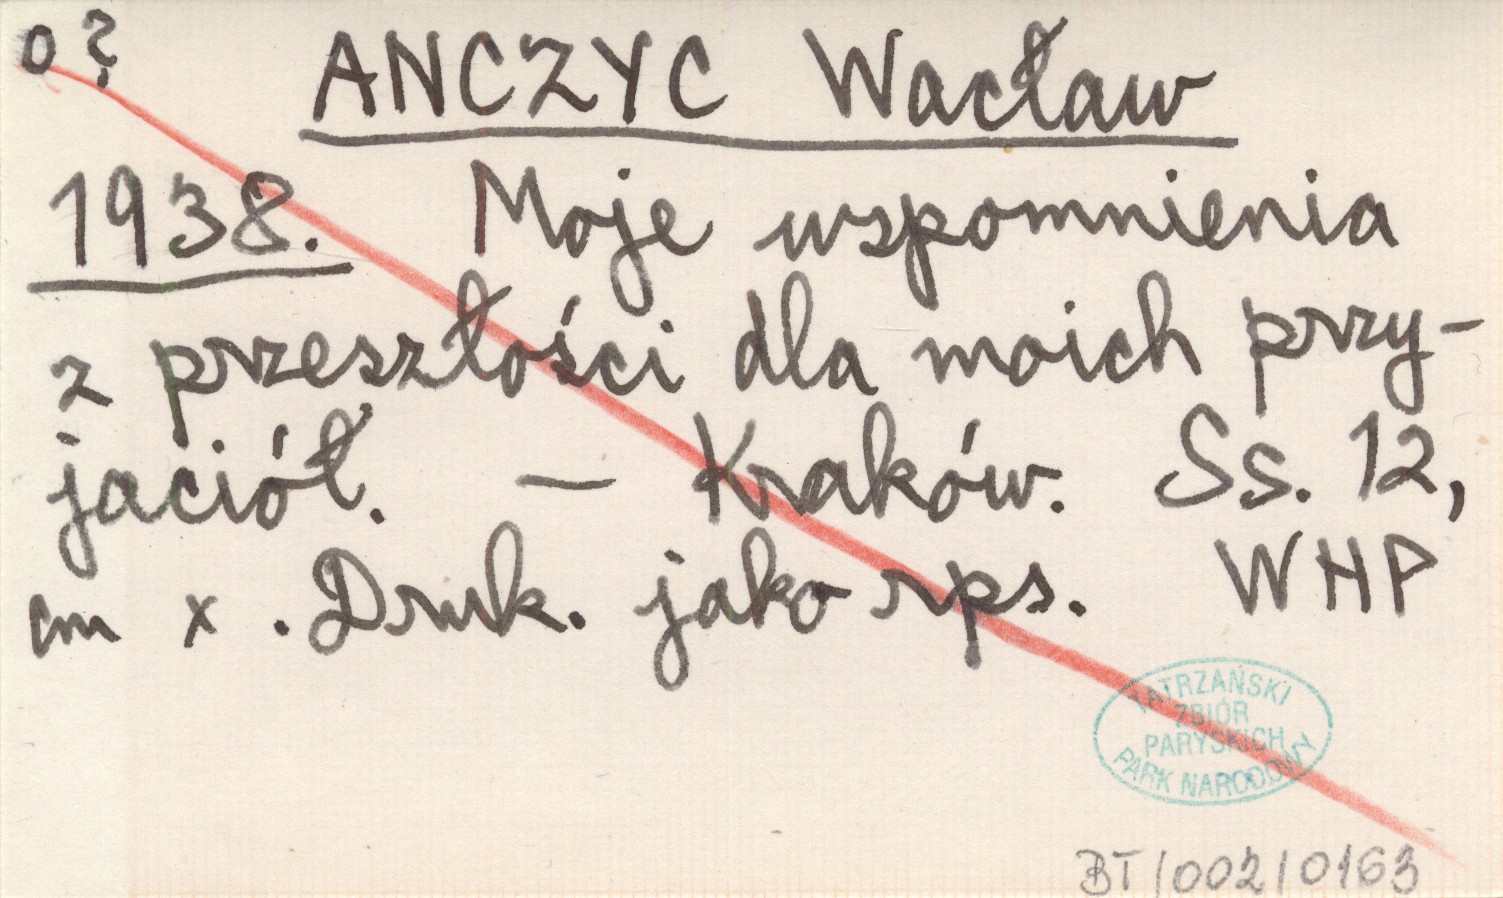 o?
ANCZYC Wacław
1938. Moje wspomnienia
z przeszłości dla moich przy-
jaciół. — Kraków. Ss. 12,
cm x . Druk. jako rps. WHP
TATRZAŃSKI
ZBIÓR
PARYSKICH
PARK NARODOWY
BT/002/0163